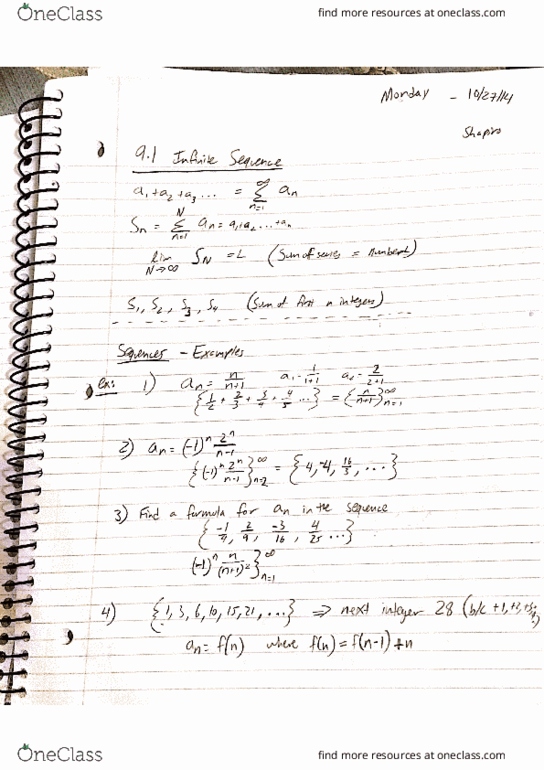 OneClass
find more resources at oneclass.com
Monday - 10/27/14
Shapiro
9.1 Infinite Sequence
a₁+a₂+a₃... = ∑_{n=1}^{∞} aₙ
Sₙ = ∑_{n=1}^{N} aₙ = a₁+a₂...+aₙ
lim_{N→∞} S_N = L (Sum of series = number)
S₁, S₂, S₃, S₄ (Sum of first n integers)
Sequences - Examples
ex: 1) aₙ = n/(n+1) a₁ = 1/(1+1) a₂ = 2/(2+1)
{1/2 + 2/3 + 3/4 + 4/5 ...} = {n/(n+1)}_{n=1}^{∞}
2) aₙ = (-1)ⁿ 2ⁿ/(n-1)
{(-1)ⁿ 2ⁿ/(n-1)}_{n=2}^{∞} = {4, -4, 16/3, ...}
3) Find a formula for aₙ in the sequence
{-1/4, 2/9, -3/16, 4/25 ...}
(-1)ⁿ n/(n+1)²}_{n=1}^{∞}
4) {1, 3, 6, 10, 15, 21, ...} ⇒ next integer 28 (b/c +1, +2, +3,
aₙ = f(n) where f(n) = f(n-1) + n
OneClass
find more resources at oneclass.com